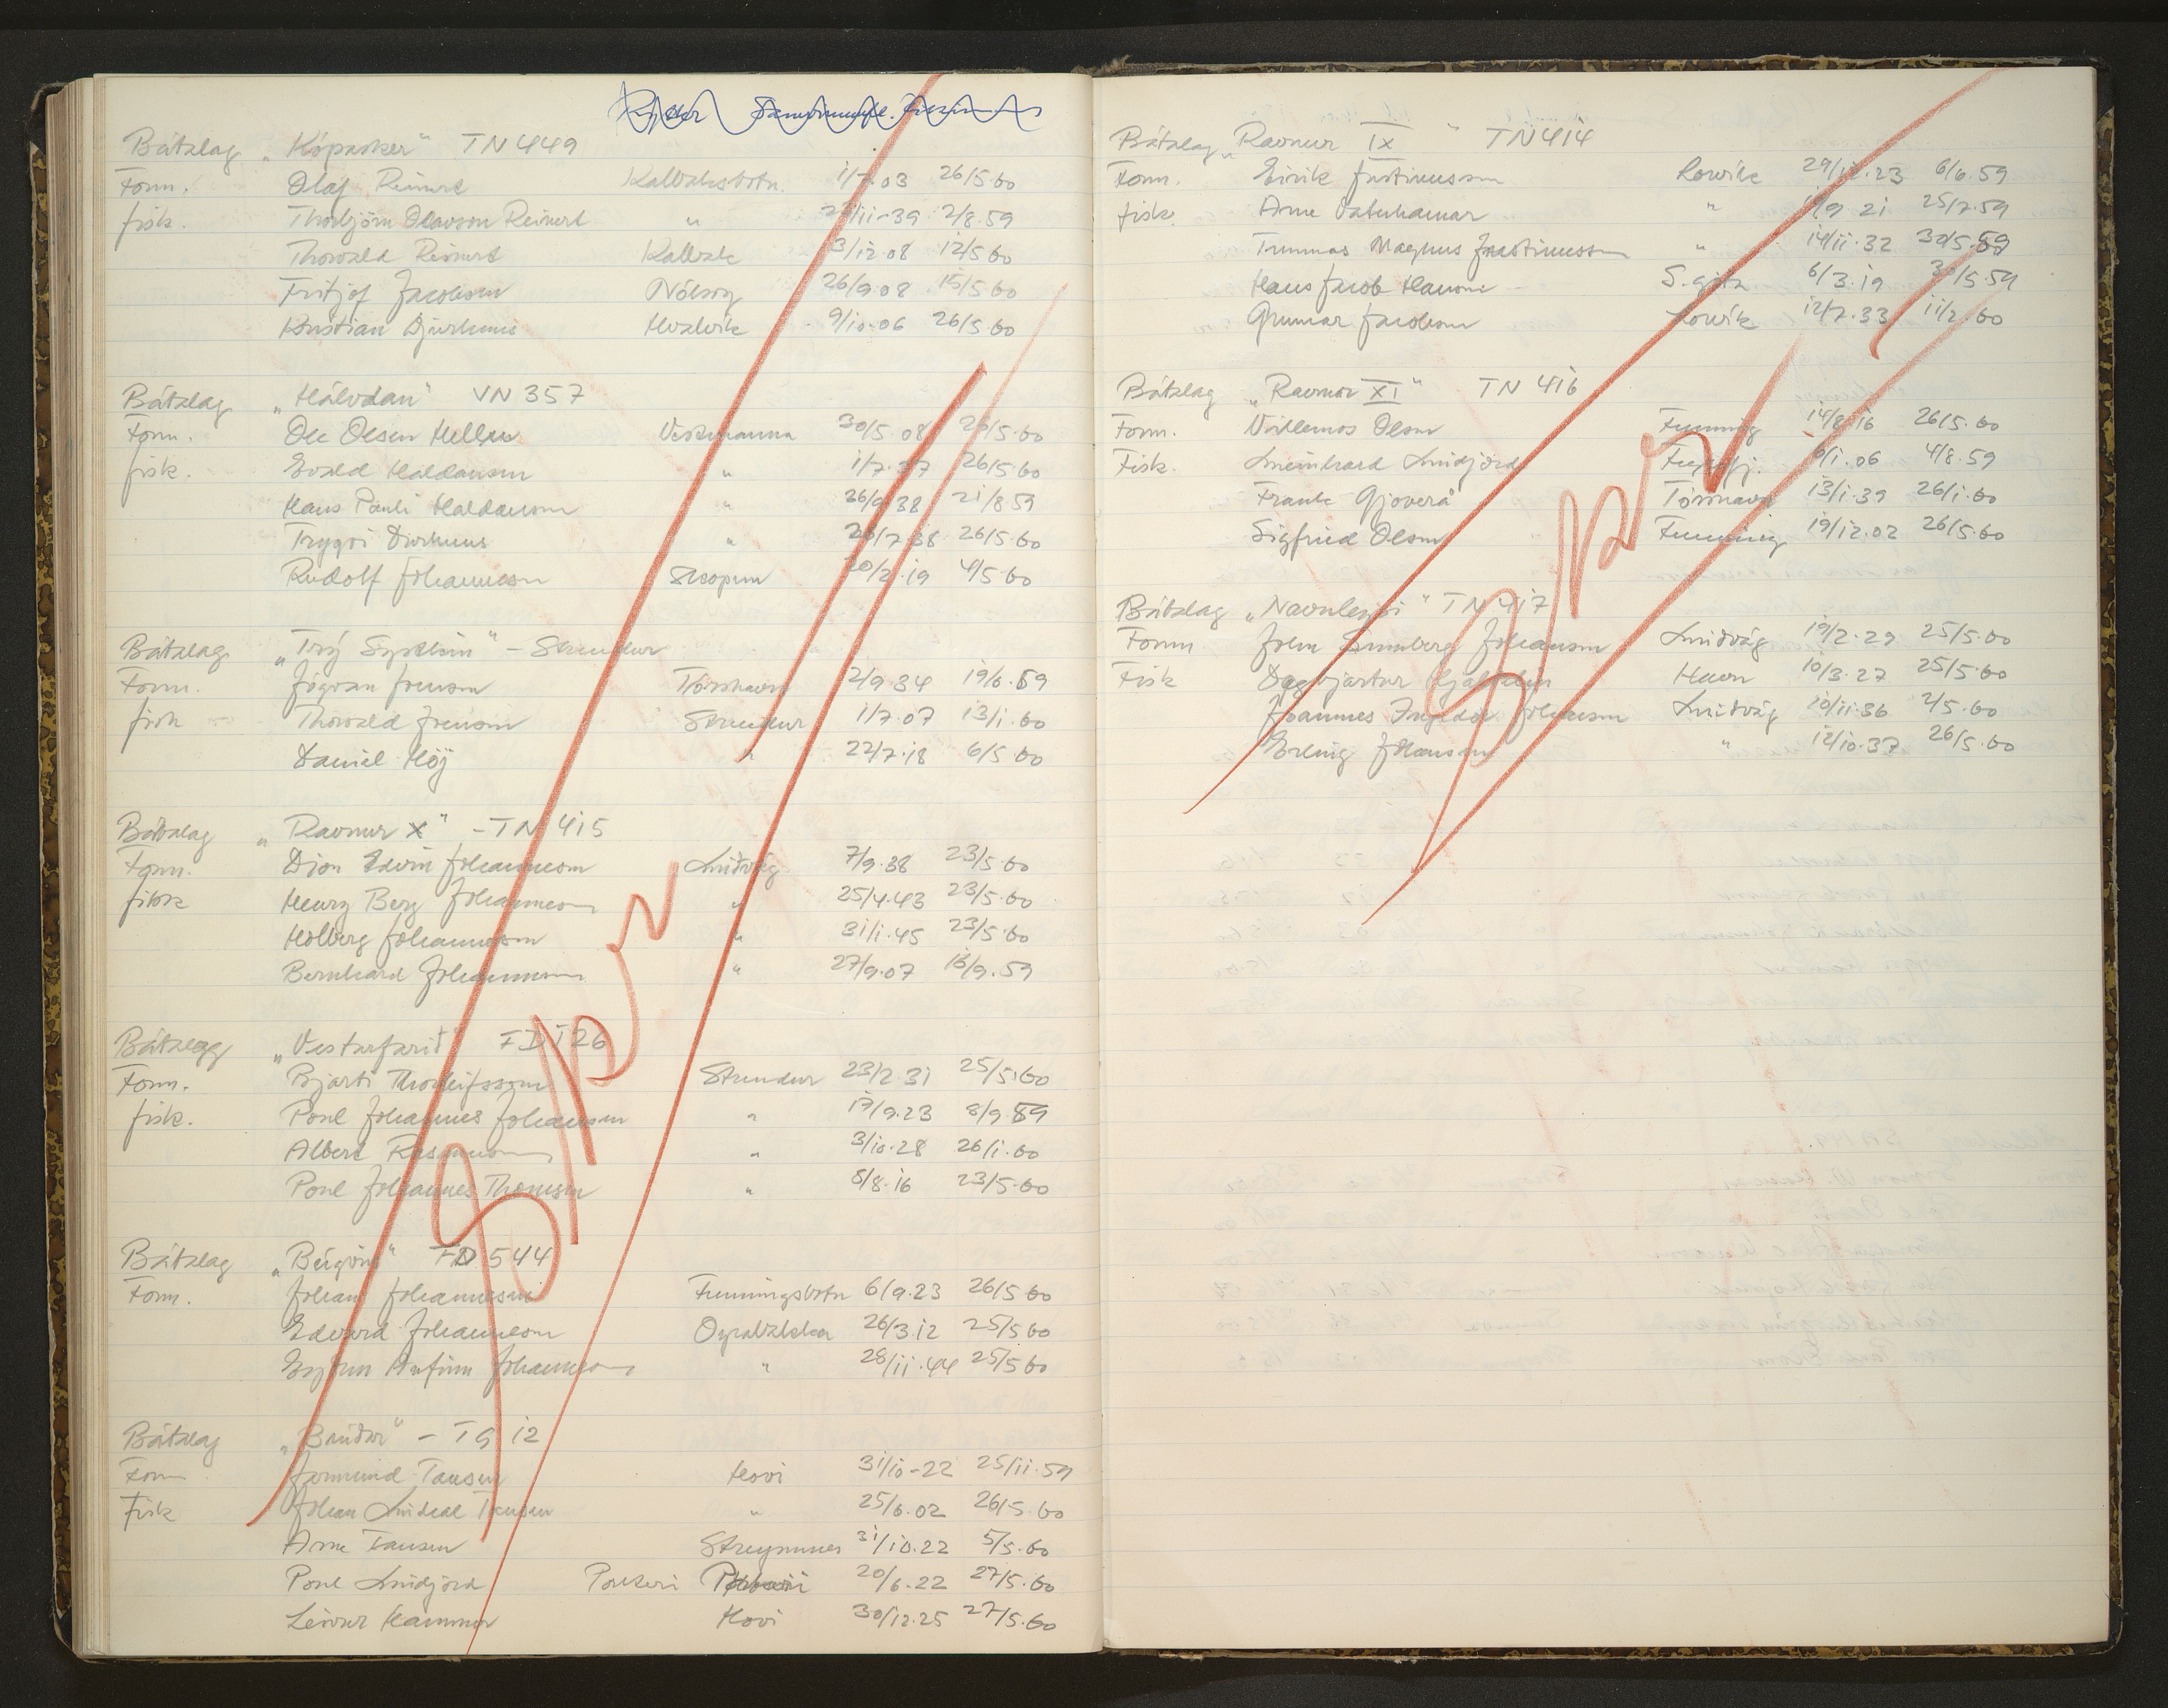 Bátalag „Kópasker" TN 449
Form. Olaf Reinert Kallbaksbotn. 1/7.03 26/5.60
fisk. Thorbjörn Olavson Reinert " /11-39 2/8.59
Thorvald Reinert Kallbak 3/12.08 12/5 60
Fritjof Jacobsen Nólsoy 26/9.08 15/5 60
Kristian Djurhuus Hvalvik 9/10.06 26/5 60
Bátalag „Hálvdan" VN 357
Form. Ole Olsen Hellen Vestmanna 30/5.08 26/5.60
fisk. Evald Haldansen " 1/7.37 26/5.60
Hans Pauli Haldansen " 26/9 38 21/8 59
Trygvi Durhuus " 26/7.38 26/5.60
Rudolf Johannesen Skopun 20/2.19 4/5 60
Bátalag „Trý Systkin" – Strendur
Form. Jógvan Joensen Tórshavn 2/9.34 19/6.59
fisk Thorvald Joensen Strendur 1/7.07 13/1.60
Daniel Höj " 22/7.18 6/5 60
Bátalag „Ravnur X" – TN 415
Form. Dion Edvin Johannesen Lambavág 7/9.38 23/5.60
fisk Henry Berg Johannesen " 25/4.43 23/5.60
Holberg Johannesen " 31/1.45 23/5.60
Bernhard Johannesen " 27/9.07 /9.59
Bátalag „Vesturfarið" FD 126
Form. Bjarti Thorleifsson Strendur 23/2 31 25/5.60
fisk. Poul Johannes Johansen " 17/9.23 8/9.59
Albert Rasmussen " 3/10.28 26/1.60
Poul Johannes Thomsen " 5/8.16 23/5.60
Spær
Bátalag FD 544
Form. Johan Johannesen Funningsbotn 6/9.23 26/5 60
Edvard Johannesen Oyrabakka 26/3.12 25/5 60
Anfinn Johannesen " 28/11.44 25/5 60
Bátalag – TG 12
Form Tausen Hovi 31/10-22 25/11.59
Fisk Johan Tausen " 25/6.02 26/5.60
Arne Tausen Streymnes 31/10.22 5/5.60
Poul Lindjörd Porkeri 20/6.22 27/5.60
Leivur Hammer Hovi 30/12.25 27/5.60
Bátalag „Ravnur IX" TN 414
Form. Eirik Justinussen Lorvik 29/12.23 6/6.59
fisk. Arne Vatnhamar " /9 21 25/7.59
Tummas Magnus Justinussen " 14/11.32 30/5.59
Hans Jacob Hansen S. gøta 6/3.19 30/5.59
Gunnar Jacobsen Lorvik 12/7.33 11/2.60
Bátalag „Ravnur XI" TN 416
Form. Villemos Olsen Funning 14/8.16 26/5.60
Fisk. Meinhard Lindjörd 6/1.06 4/8.59
Frank Gjoverå Tórshavn 13/1.39 26/1.60
Sigfried Olsen Funning 19/12.02 26/5.60
Spær
Bátalag TN 417
Form John Johansen Lambavág 19/2.29 25/5.60
Fisk Dagbjartur Havn 10/3.27 25/5.60
Joannes Johansen Lambavág 20/11.36 2/5.60
Erling Johansen " 12/10.37 26/5.60